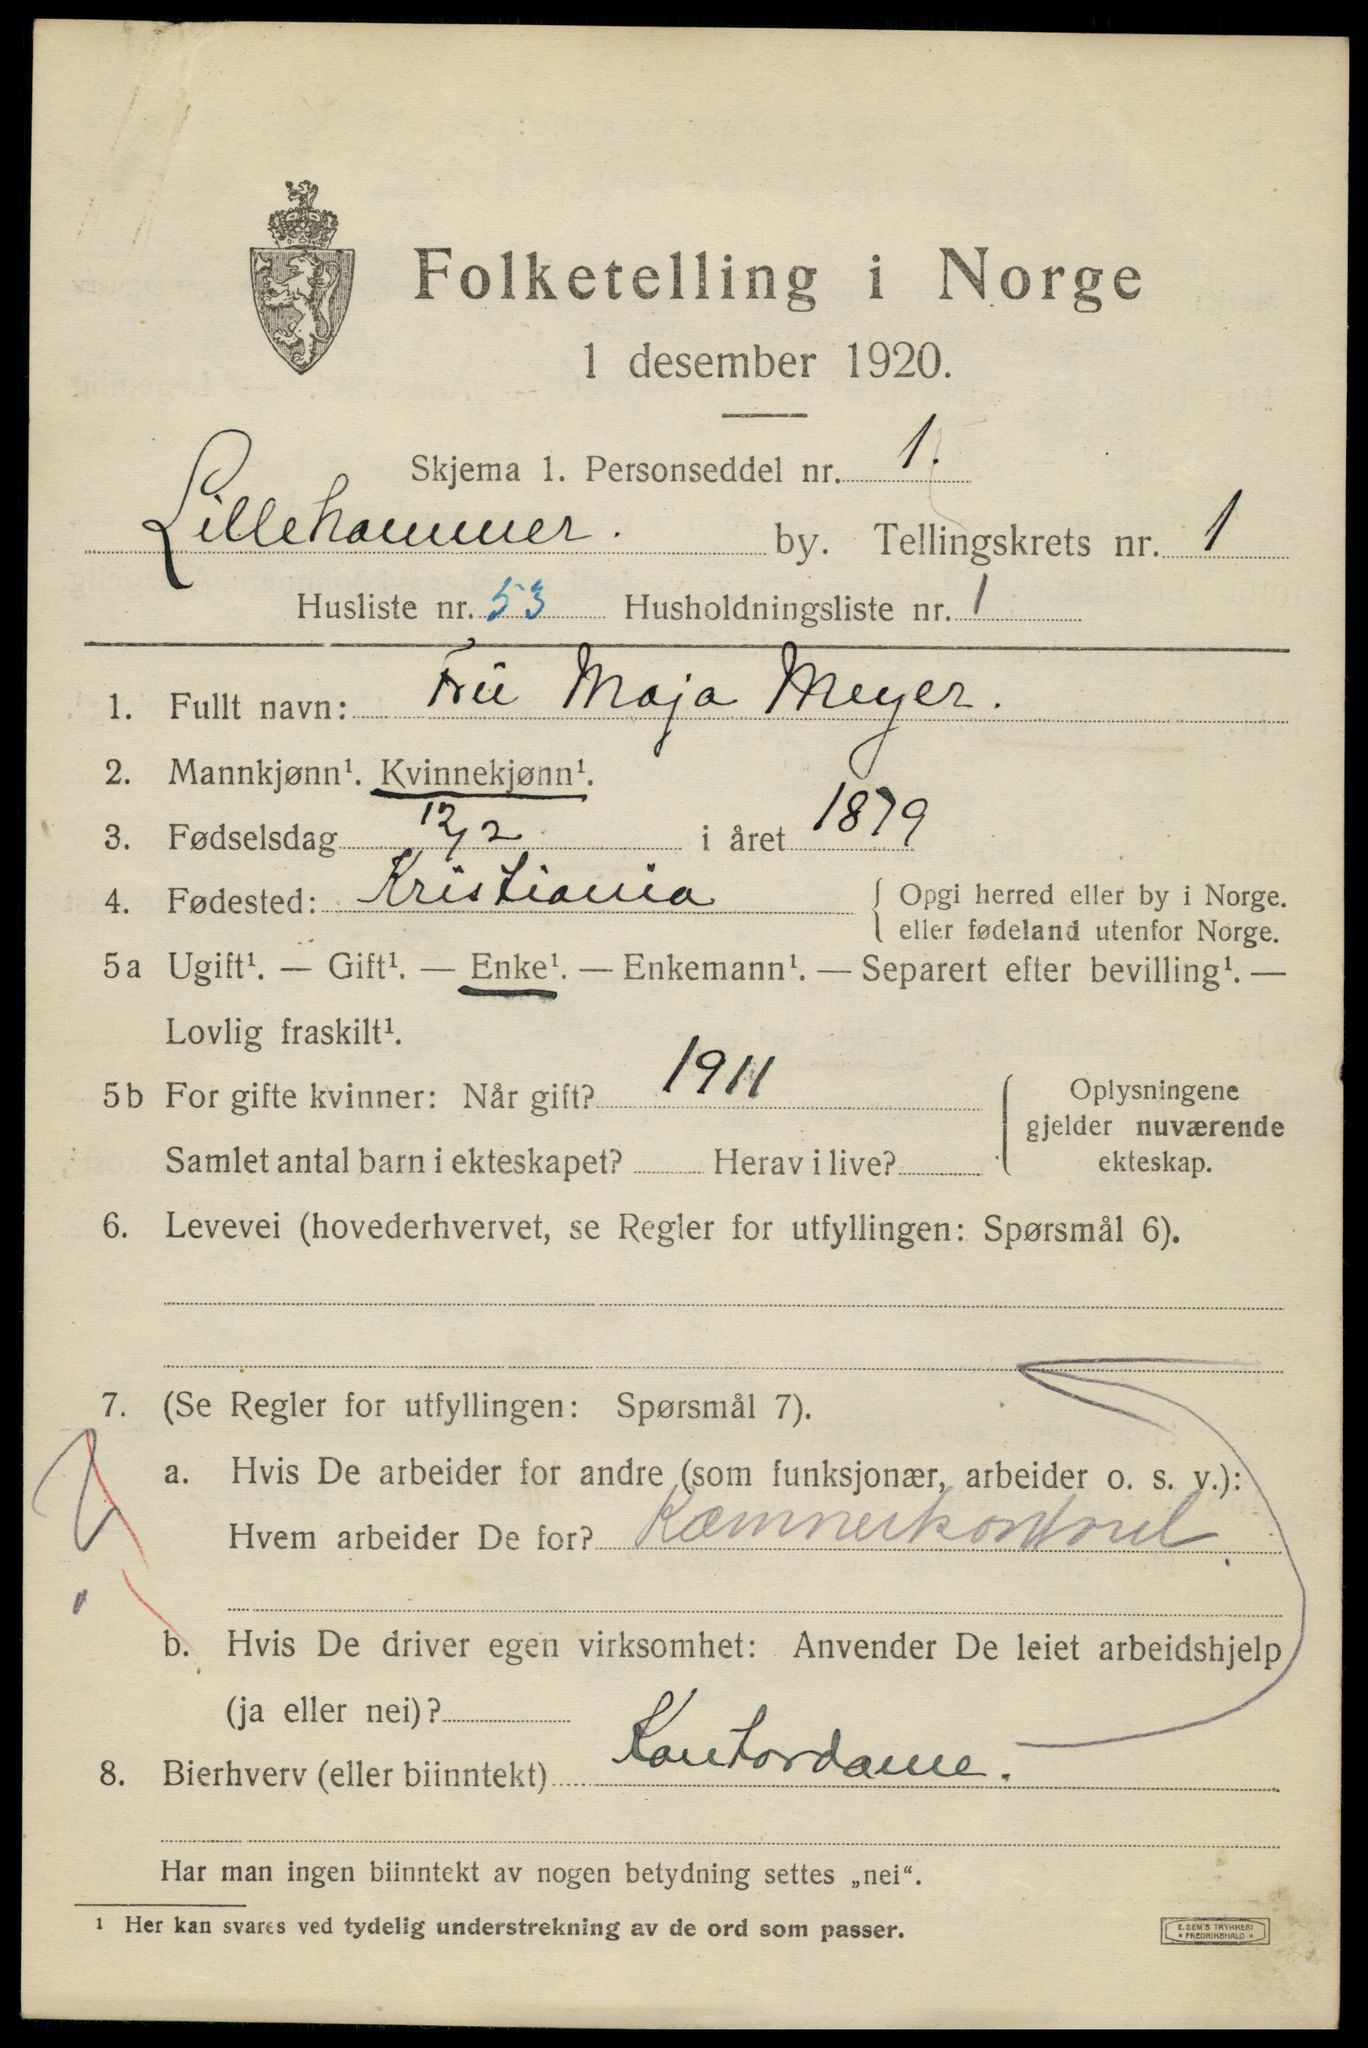 Folketelling i Norge
1 desember 1920.
Skjema 1. Personseddel nr. 1.
Lillehammer. by. Tellingskrets nr. 1
Husliste nr. 53 Husholdningsliste nr. 1
1. Fullt navn: Frü Maja Meyer.
2. Mannkjønn¹. Kvinnekjønn¹.
3. Fødselsdag 12/2 i året 1879
4. Fødested: Kristiania { Opgi herred eller by i Norge.
eller fødeland utenfor Norge.
5a Ugift¹. — Gift¹. — Enke¹. — Enkemann¹. — Separert efter bevilling¹. —
Lovlig fraskilt¹.
5b For gifte kvinner: Når gift? 1911
Samlet antal barn i ekteskapet? Herav i live?
Oplysningene
gjelder nuværende
ekteskap.
6. Levevei (hovederhvervet, se Regler for utfyllingen: Spørsmål 6).
7. (Se Regler for utfyllingen: Spørsmål 7).
a. Hvis De arbeider for andre (som funksjonær, arbeider o. s. v.):
Hvem arbeider De for? Kæmnerkontoret.
b. Hvis De driver egen virksomhet: Anvender De leiet arbeidshjelp
(ja eller nei)?
8. Bierhverv (eller biinntekt) Kontordame.
Har man ingen biinntekt av nogen betydning settes „nei“.
¹ Her kan svares ved tydelig understrekning av de ord som passer.
E. SEM'S TRYKKERI
• FREDRIKSHALD •